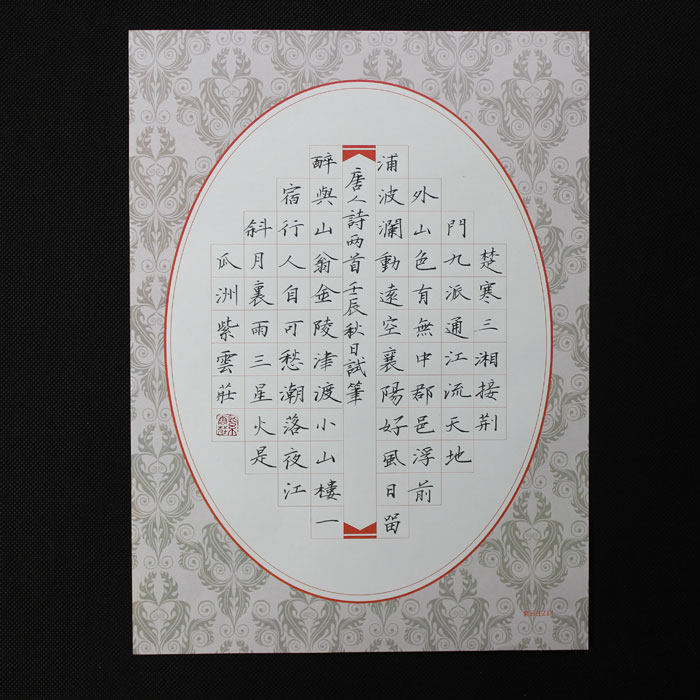 楚寒三湘接荆
門九派通江流天地
外山色有無中郡邑浮前
浦波瀾動遠空襄陽好風日留
唐人詩两首壬辰秋日試筆
醉與山翁金陵津渡小山樓一
宿行人自可愁潮落夜江
斜月裏雨三星火是
瓜洲紫雲莊